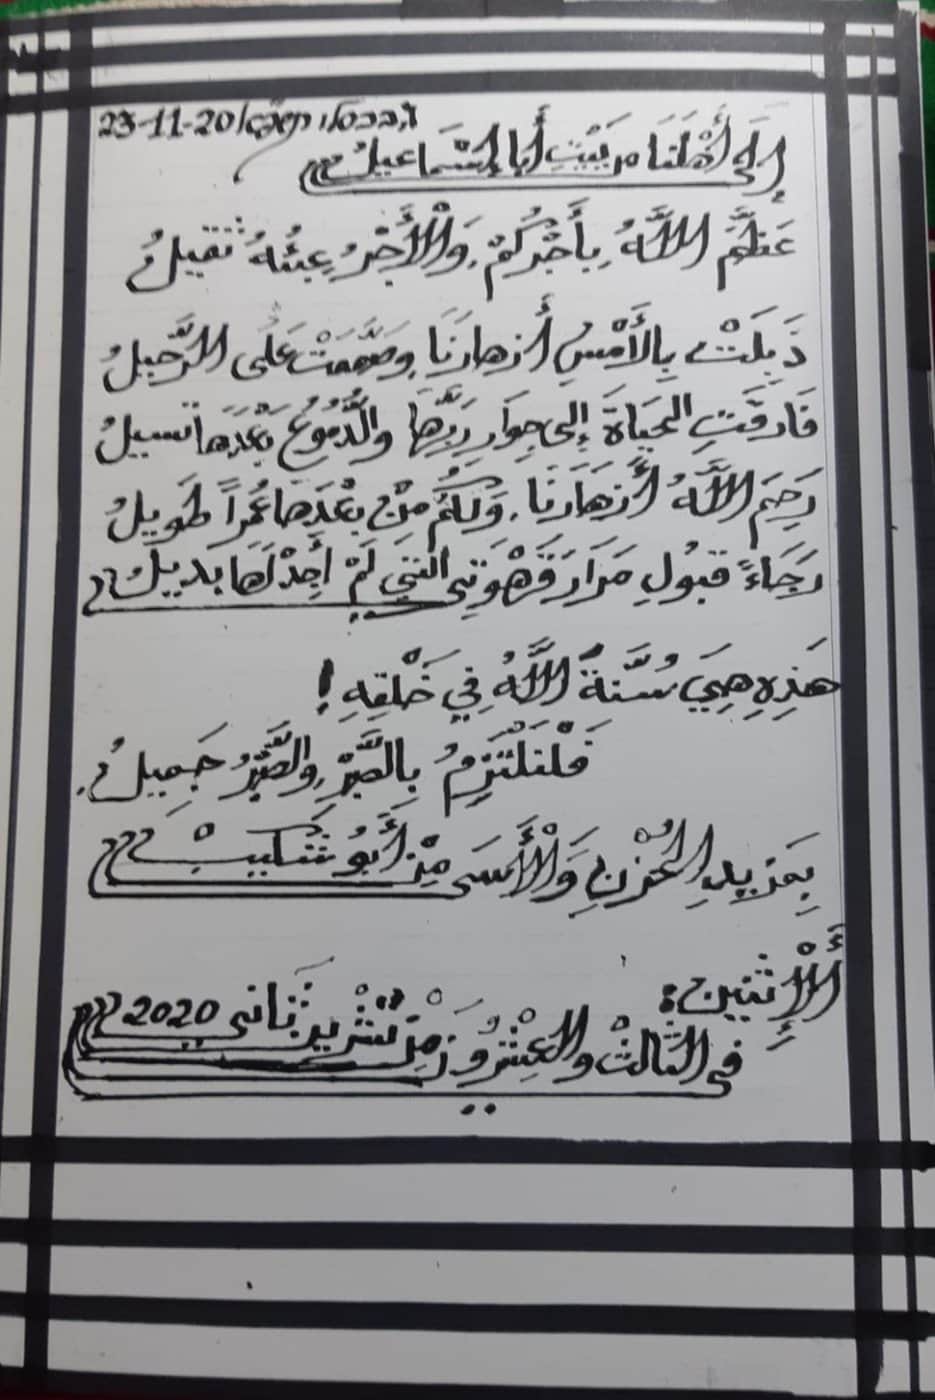 23-11-20
إلَى أَهْلَنَا مِن بَيْتِ أَبا إِسْمَاعيلُ
عَظَّمَ اللَّهُ بِأَجْرِكُمْ، وَالْأَجْرُ عِبْئُهُ ثقيلُ
ذَبَلَتْ بِالأَمْسِ أَزهارنَا وصَمَّمَتْ عَلَى الرَّحِيلُ
فَارَقَتِ الحَيَاةَ إلى جِوَارِ رَبَّهَا والدُّمُوعُ بَعْدَهَا تسيلُ
رَحِمَ اللَّهُ أَزهَارَنَا، وَلَكُمْ مِنْ بعْدَهَا عُمراً طَويلُ
رَجَاءً قبُولِ مَرَارَ قَهْوَتِي التي لَمْ أَجِدْ لَهَا بَديلُ
هَذِهِ هِيَ سُنَّةَ اللَّهُ فِي خَلْقِهِ!
فَلْنَلْتَزِمُ بِالصَّبْرِ، والصَّبْرُ جَمِيلُ.
بِمَزيدِ الحُزْنِ وَالْأَسَى مِنْ أَبُو شَكيبْ
أَلْإِثنين:
في الثَّالثْ والعِشْرُونَ مِنْ تشْرين ثَاني 2020